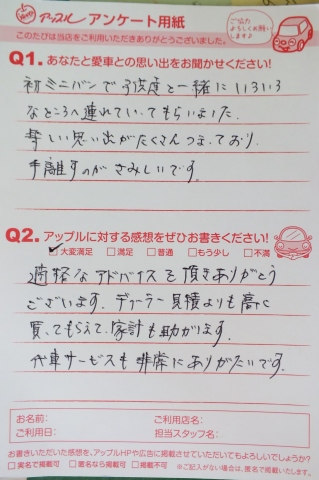 アップル アンケート用紙
ご協力
よろしくお願い
します♪
このたびは当店をご利用いただきありがとうございました。
Q1. あなたと愛車との思い出をお聞かせください!
初ミニバンで子供達と一緒にいろいろ
なところへ連れていってもらいました。
楽しい思い出がたくさんつまっており、
手離すのがさみしいです。
Q2. アップルに対する感想をぜひお書きください!
大変満足 満足 普通 もう少し 不満
適格なアドバイスを頂きありがとう
ございます。ディーラー見積よりも高く
買ってもらえて、家計も助かります。
代車サービスも非常にありがたいです。
お名前: ご利用店名:
ご利用日: 担当スタッフ名:
お書きいただいた感想を、アップルHPや広告に掲載させていただいてもよろしいでしょうか?
実名で掲載可 匿名なら掲載可 掲載不可 ※ご記入がない場合は、匿名で掲載いたします。